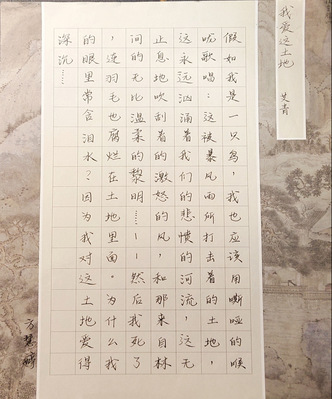 我爱这土地 艾青
假如我是一只鸟，我也应该用嘶哑的喉
咙歌唱：这被暴风雨所打击着的土地，
这永远汹涌着我们的悲愤的河流，这无
止息地吹刮着的激怒的风，和那来自林
间的无比温柔的黎明……——然后我死了
，连羽毛也腐烂在土地里面。为什么我
的眼里常含泪水？因为我对这土地爱得
深沉……